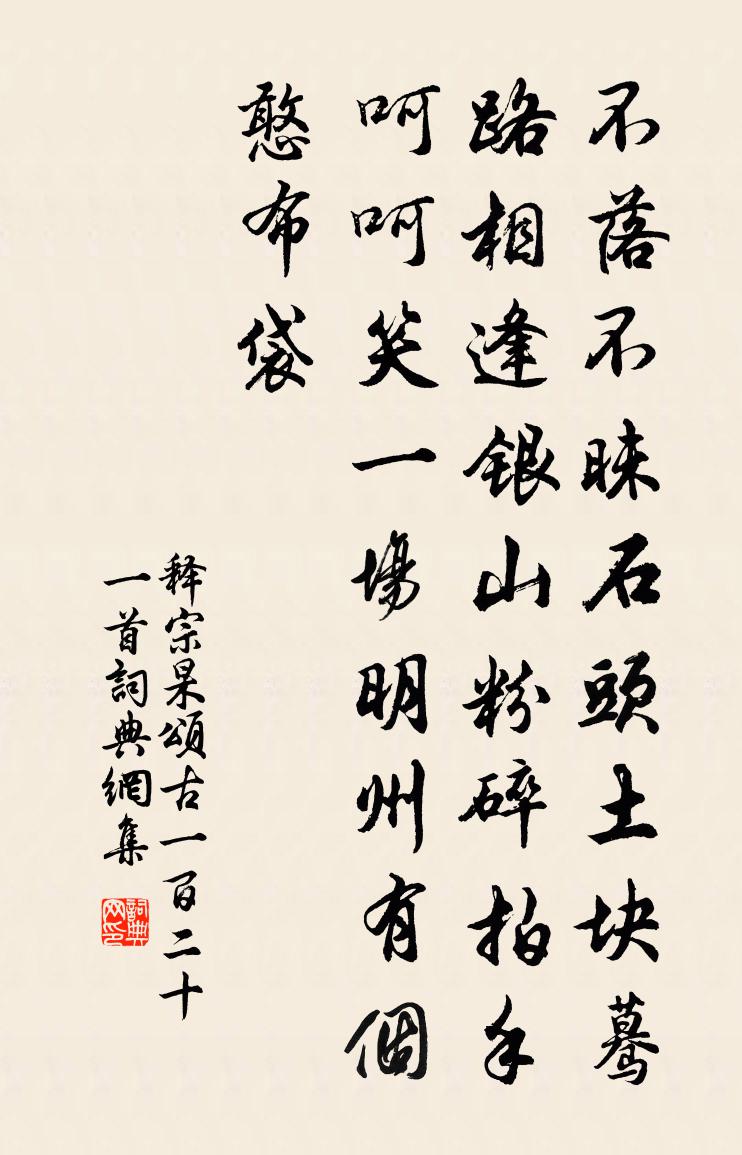 不落不昧石頭土块驀
路相逢銀山粉碎拍手
呵呵笑一場明州有個
憨布袋
释宗杲頌古一百二十
一首詞典網集
詞典网印